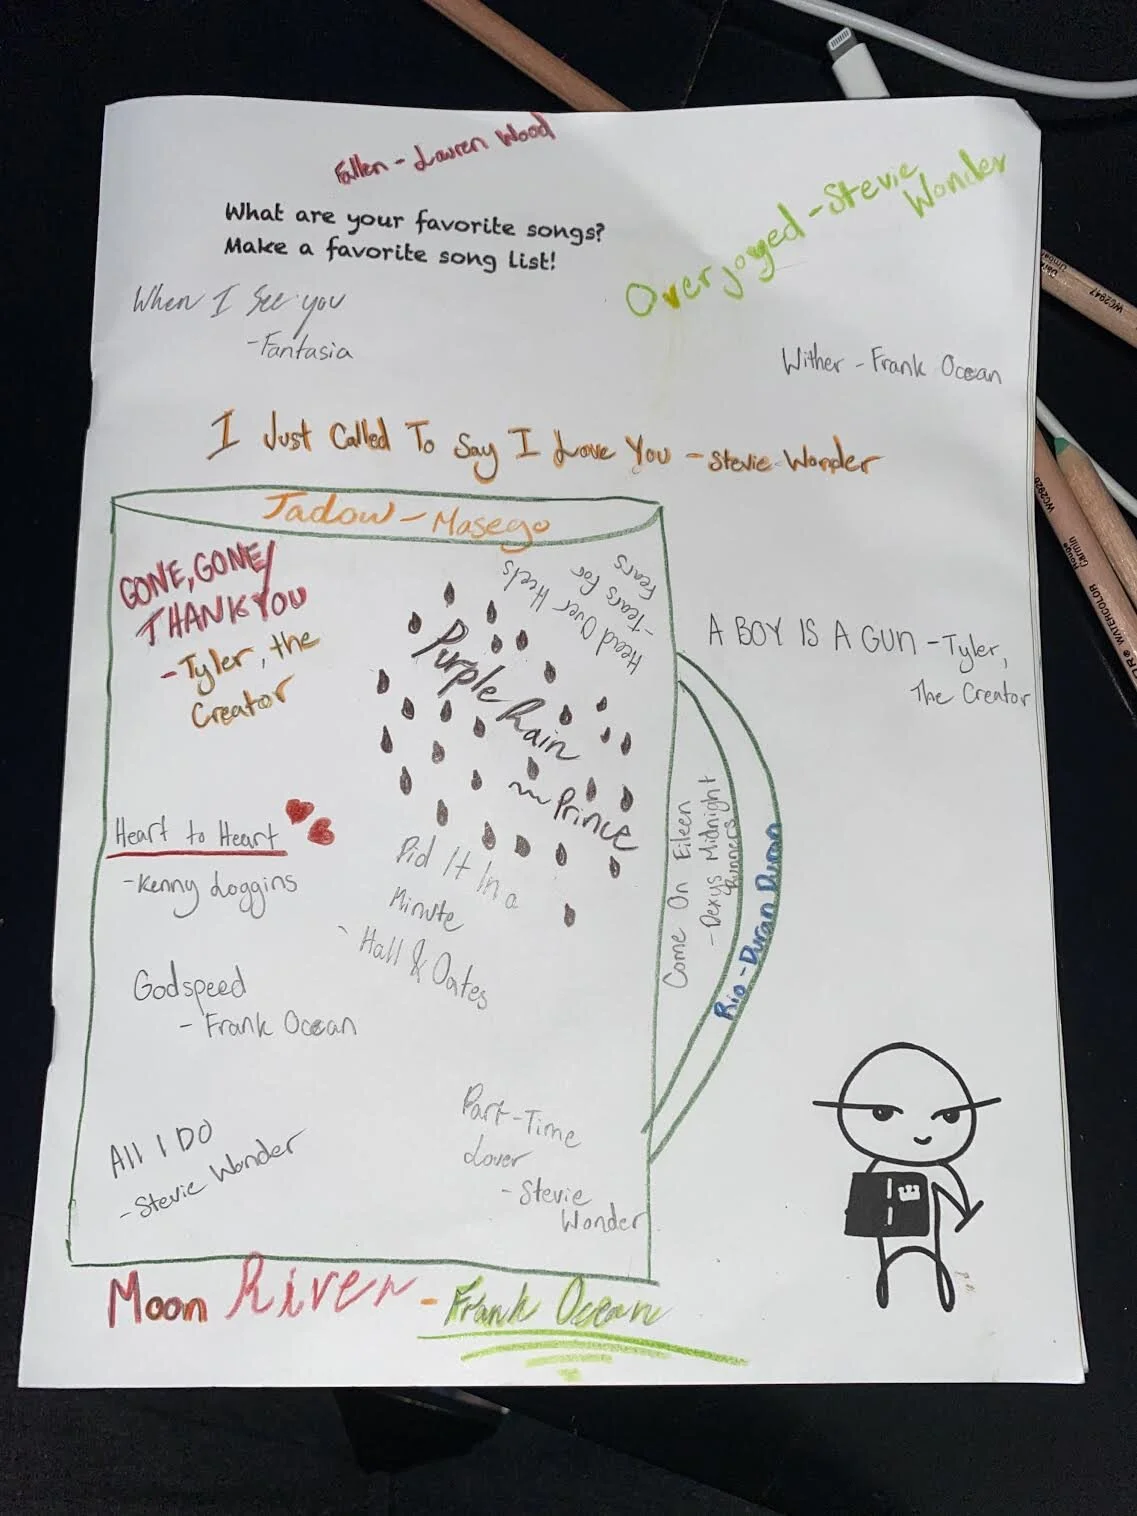 Fallen - Lauren Wood
What are your favorite songs?
Make a favorite song list!
Overjoyed - Stevie
Wonder
When I See you
- Fantasia
Wither - Frank Ocean
I Just Called To Say I Love You - Stevie Wonder
Jadow - Masego
GONE, GONE/
THANK YOU
- Tyler, the
Creator
Head Over Heels
- Tears For
Fears
Purple Rain
~ Prince
A BOY IS A GUN - Tyler,
The Creator
Heart to Heart
- Kenny Loggins
Did It In a
Minute
- Hall & Oates
Come On Eileen
- Dexys Midnight
Runners
Rio - Duran Duran
Godspeed
- Frank Ocean
All I DO
- Stevie Wonder
Part-Time
Lover
- Stevie
Wonder
Moon River - Frank Ocean
WC2947
WC2926
Rouge
Carmin
WATERCOLOR